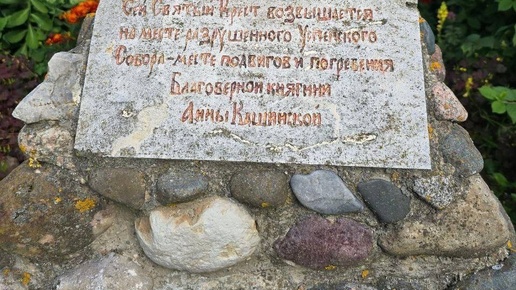 Сей Святый Крест возвышается
на месте разрушенного Успенского
Собора-месте подвигов и погребения
Благоверной княгини
Анны Кашинской